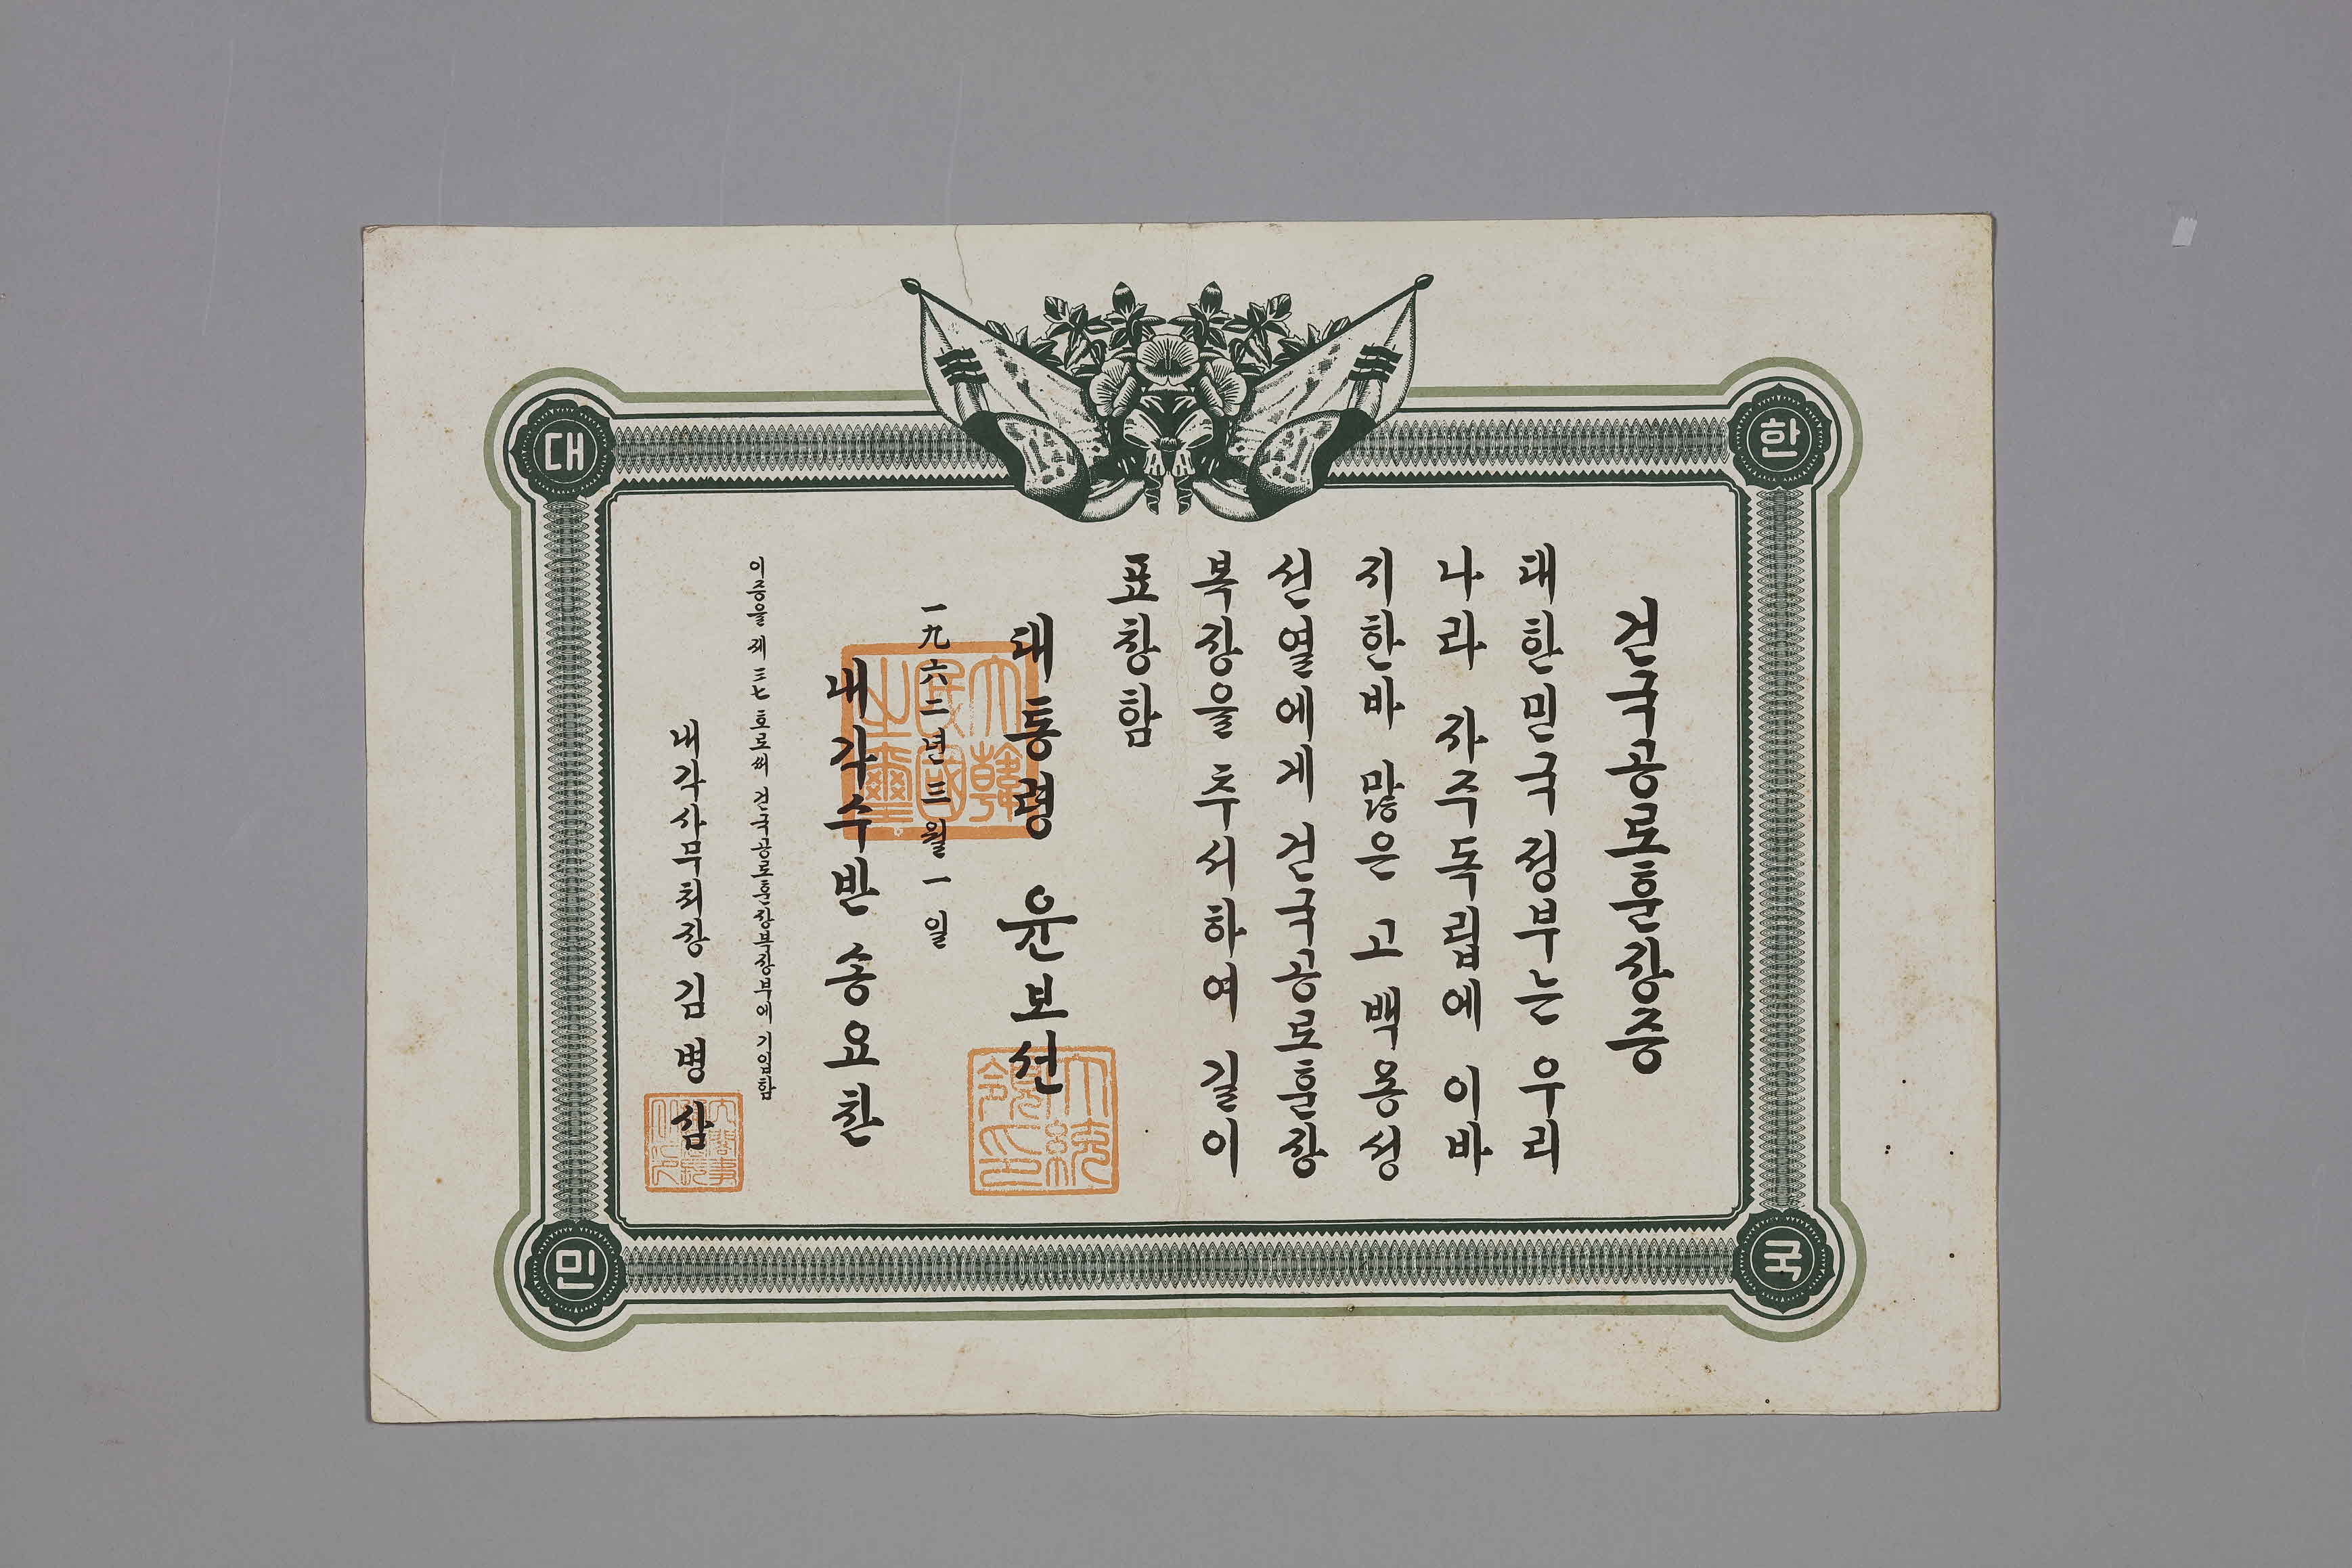 대
한
민
국
건국공로훈장증
대한민국정부는 우리
나라 자주독립에 이바
지한바 많은 고 백용성
선열에게 건국공로훈장
복장을 추서하여 길이
표창함
대통령 윤보선
大韓民國之璽
大統領印
一九六二년 三월 一일
내각수반 송요찬
이증을 제 三七 호로써 건국공로훈장부장부에 기입함
내각사무처장 김병삼